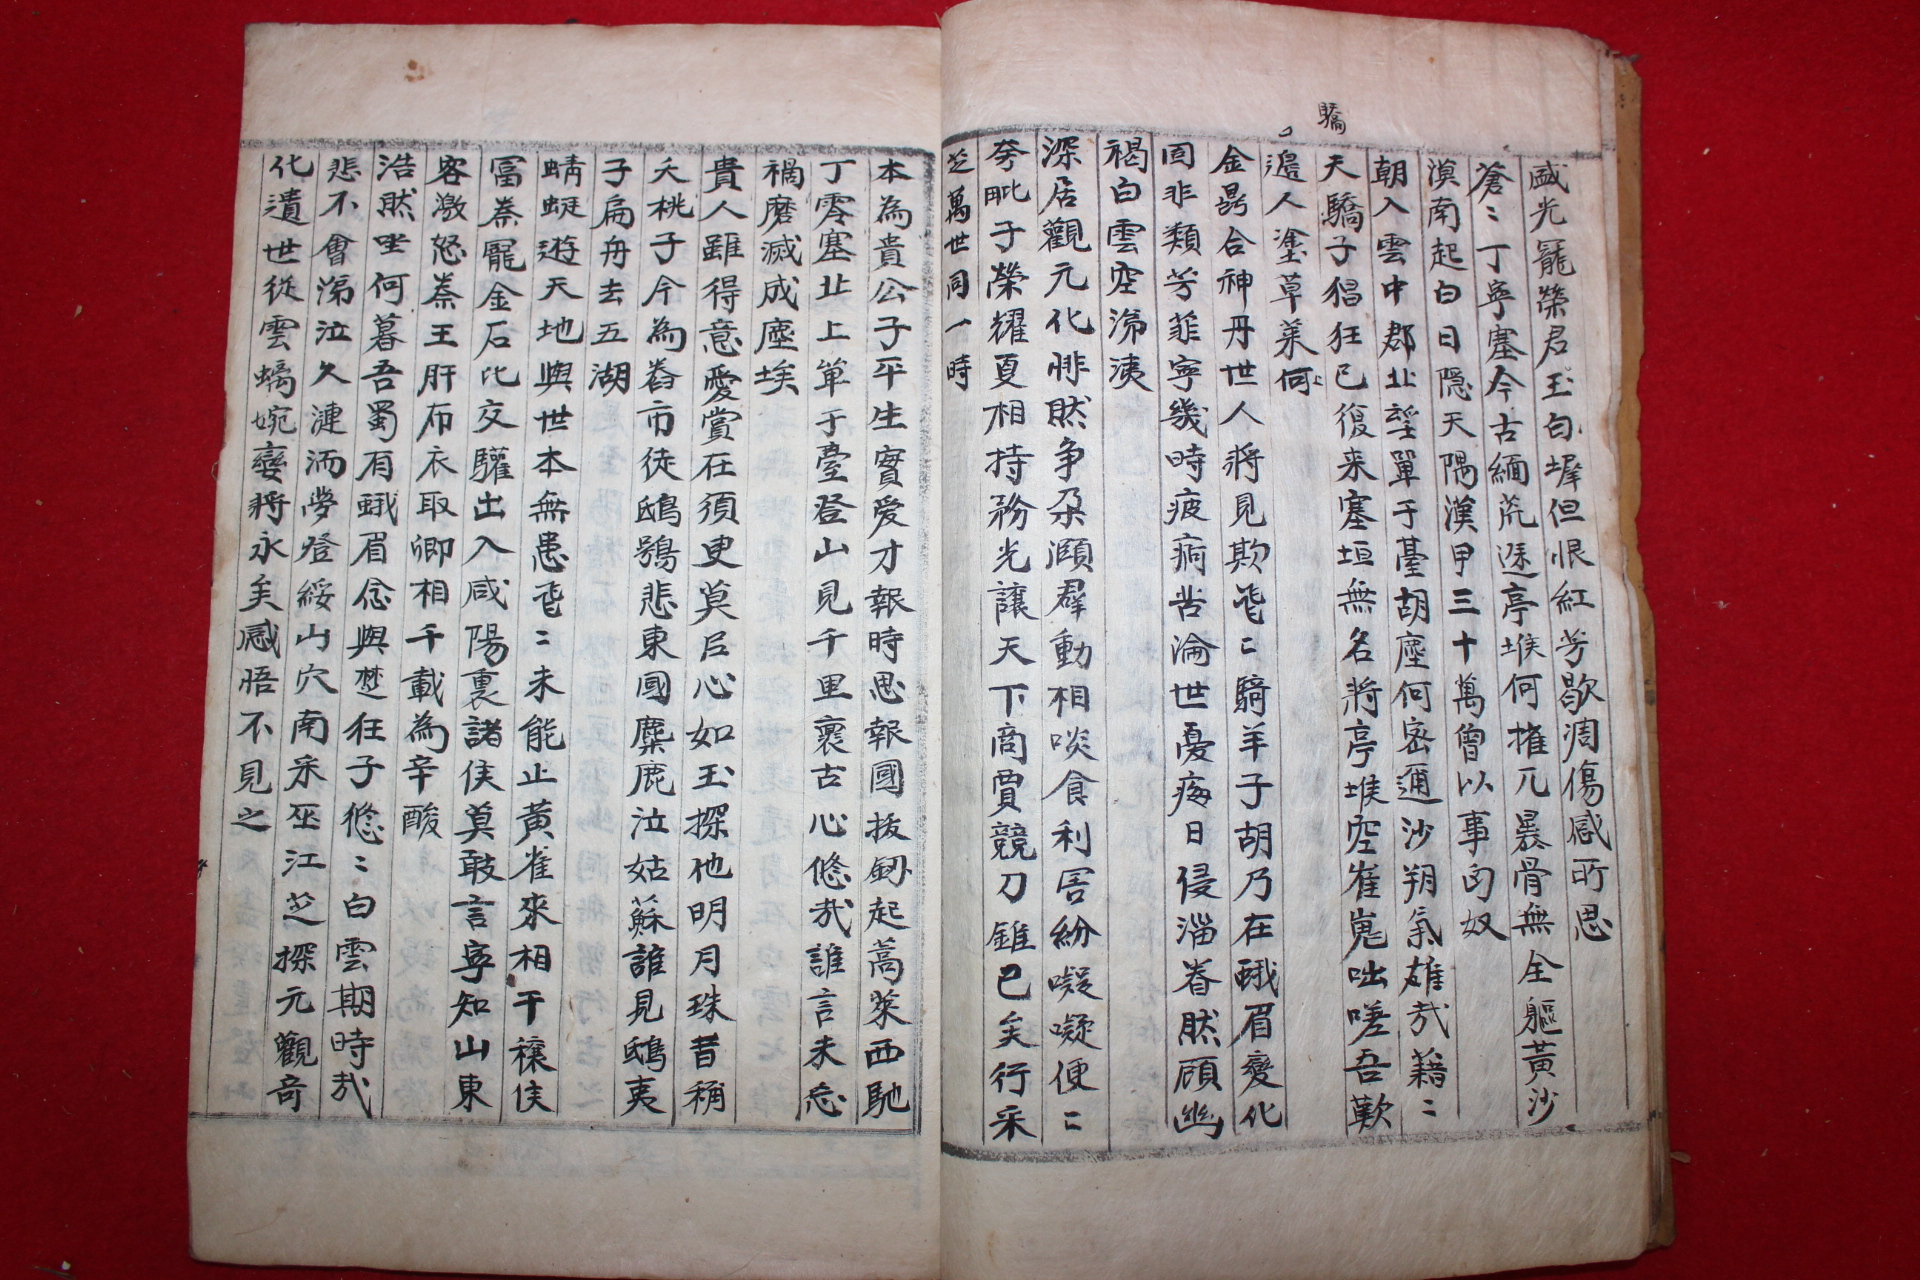 驕
盛光寵榮君玉白墀但恨紅芳歇凋傷感所思
蒼〻丁寧塞今古緬荒途亭堠何摧兀暴骨無全軀黃沙
漠南起白日隱天隅漢甲三十萬曾以事匈奴
朝入雲中郡北望單于臺胡塵何密邇沙朔氣雄哉藉〻
天驕子猖狂已復来塞垣無名將亭堠空崔嵬咄嗟吾歎
邊人塗草萊何
金鼎合神丹世人將見欺飛〻騎羊子胡乃在蛾眉變化
固非類芳菲寧幾時疲痾苦淪世憂痗日侵淄眷然顧幽
褐白雲空涕洟
深居觀元化悱然争朶頤群動相啖食利害紛㘈㘈便〻
夸毗子榮耀更相持務光讓天下商賈競刀錐已矣行采
芝萬世同一時
本為貴公子平生實愛才報時思報國拔劒起蒿萊西馳
丁零塞北上單于臺登山見千里褱古心悠哉誰言未忘
禍磨滅成塵埃
貴人雖得意愛賞在須臾莫㠯心如玉探他明月珠昔稱
夭桃子今為舂市徒鴟鴞悲東國麋鹿泣姑蘇誰見鴟夷
子扁舟去五湖
蜻蜓遊天地與世本無患飛〻未能止黃雀來相干穰侯
富秦寵金石比交驩出入咸陽裏諸侯莫敢言寧知山東
客激怒秦王肝布衣取卿相千載為辛酸
浩然坐何暮吾蜀有蛾眉念與楚狂子悠〻白雲期時哉
悲不會涕泣久漣洏夢登綏山穴南采巫江芝探元觀奇
化遺世從雲螭婉孌將永矣感悟不見之